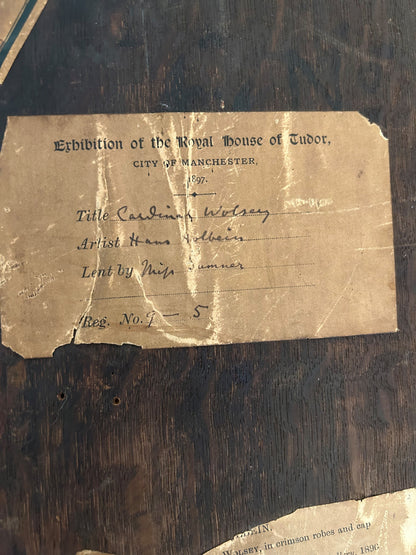 Exhibition of the Royal House of Tudor,
CITY OF MANCHESTER,
1897.
Title Cardinal Wolsey
Artist Hans Holbein
Lent by Miss Sumner
Reg. No. 9 — 5
WOLSEY, in crimson robes and cap
1890